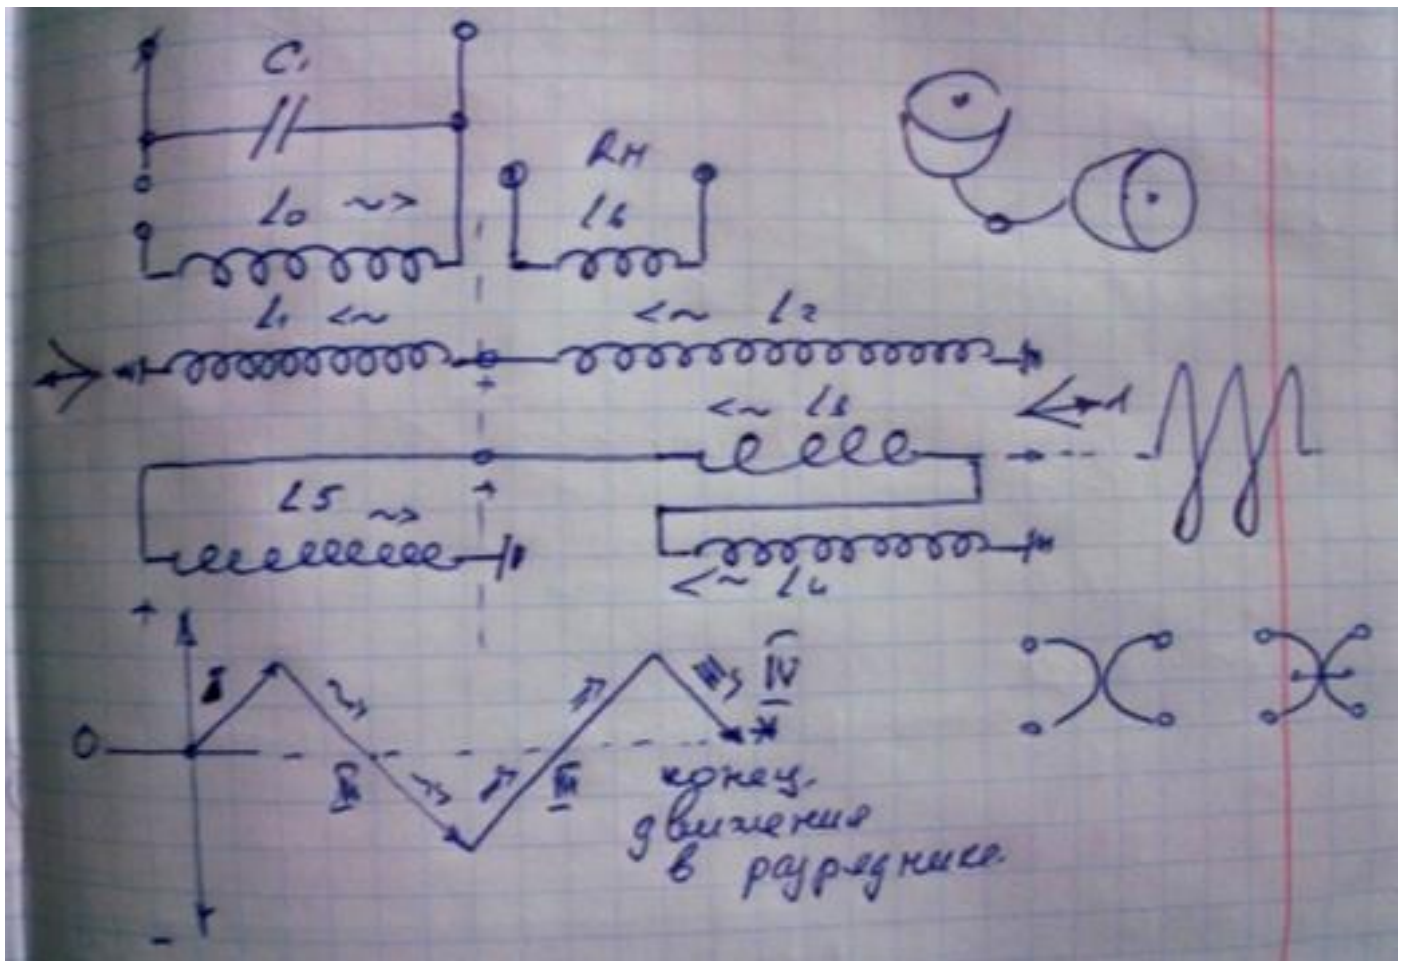 C1
Rн
L0 ~>
L6
L1 <~
<~ L2
<~ L3
L5 ~>
<~ L4
+
+
+
I
IV
0
II
III
*
конец.
движения
в разряднике.
-